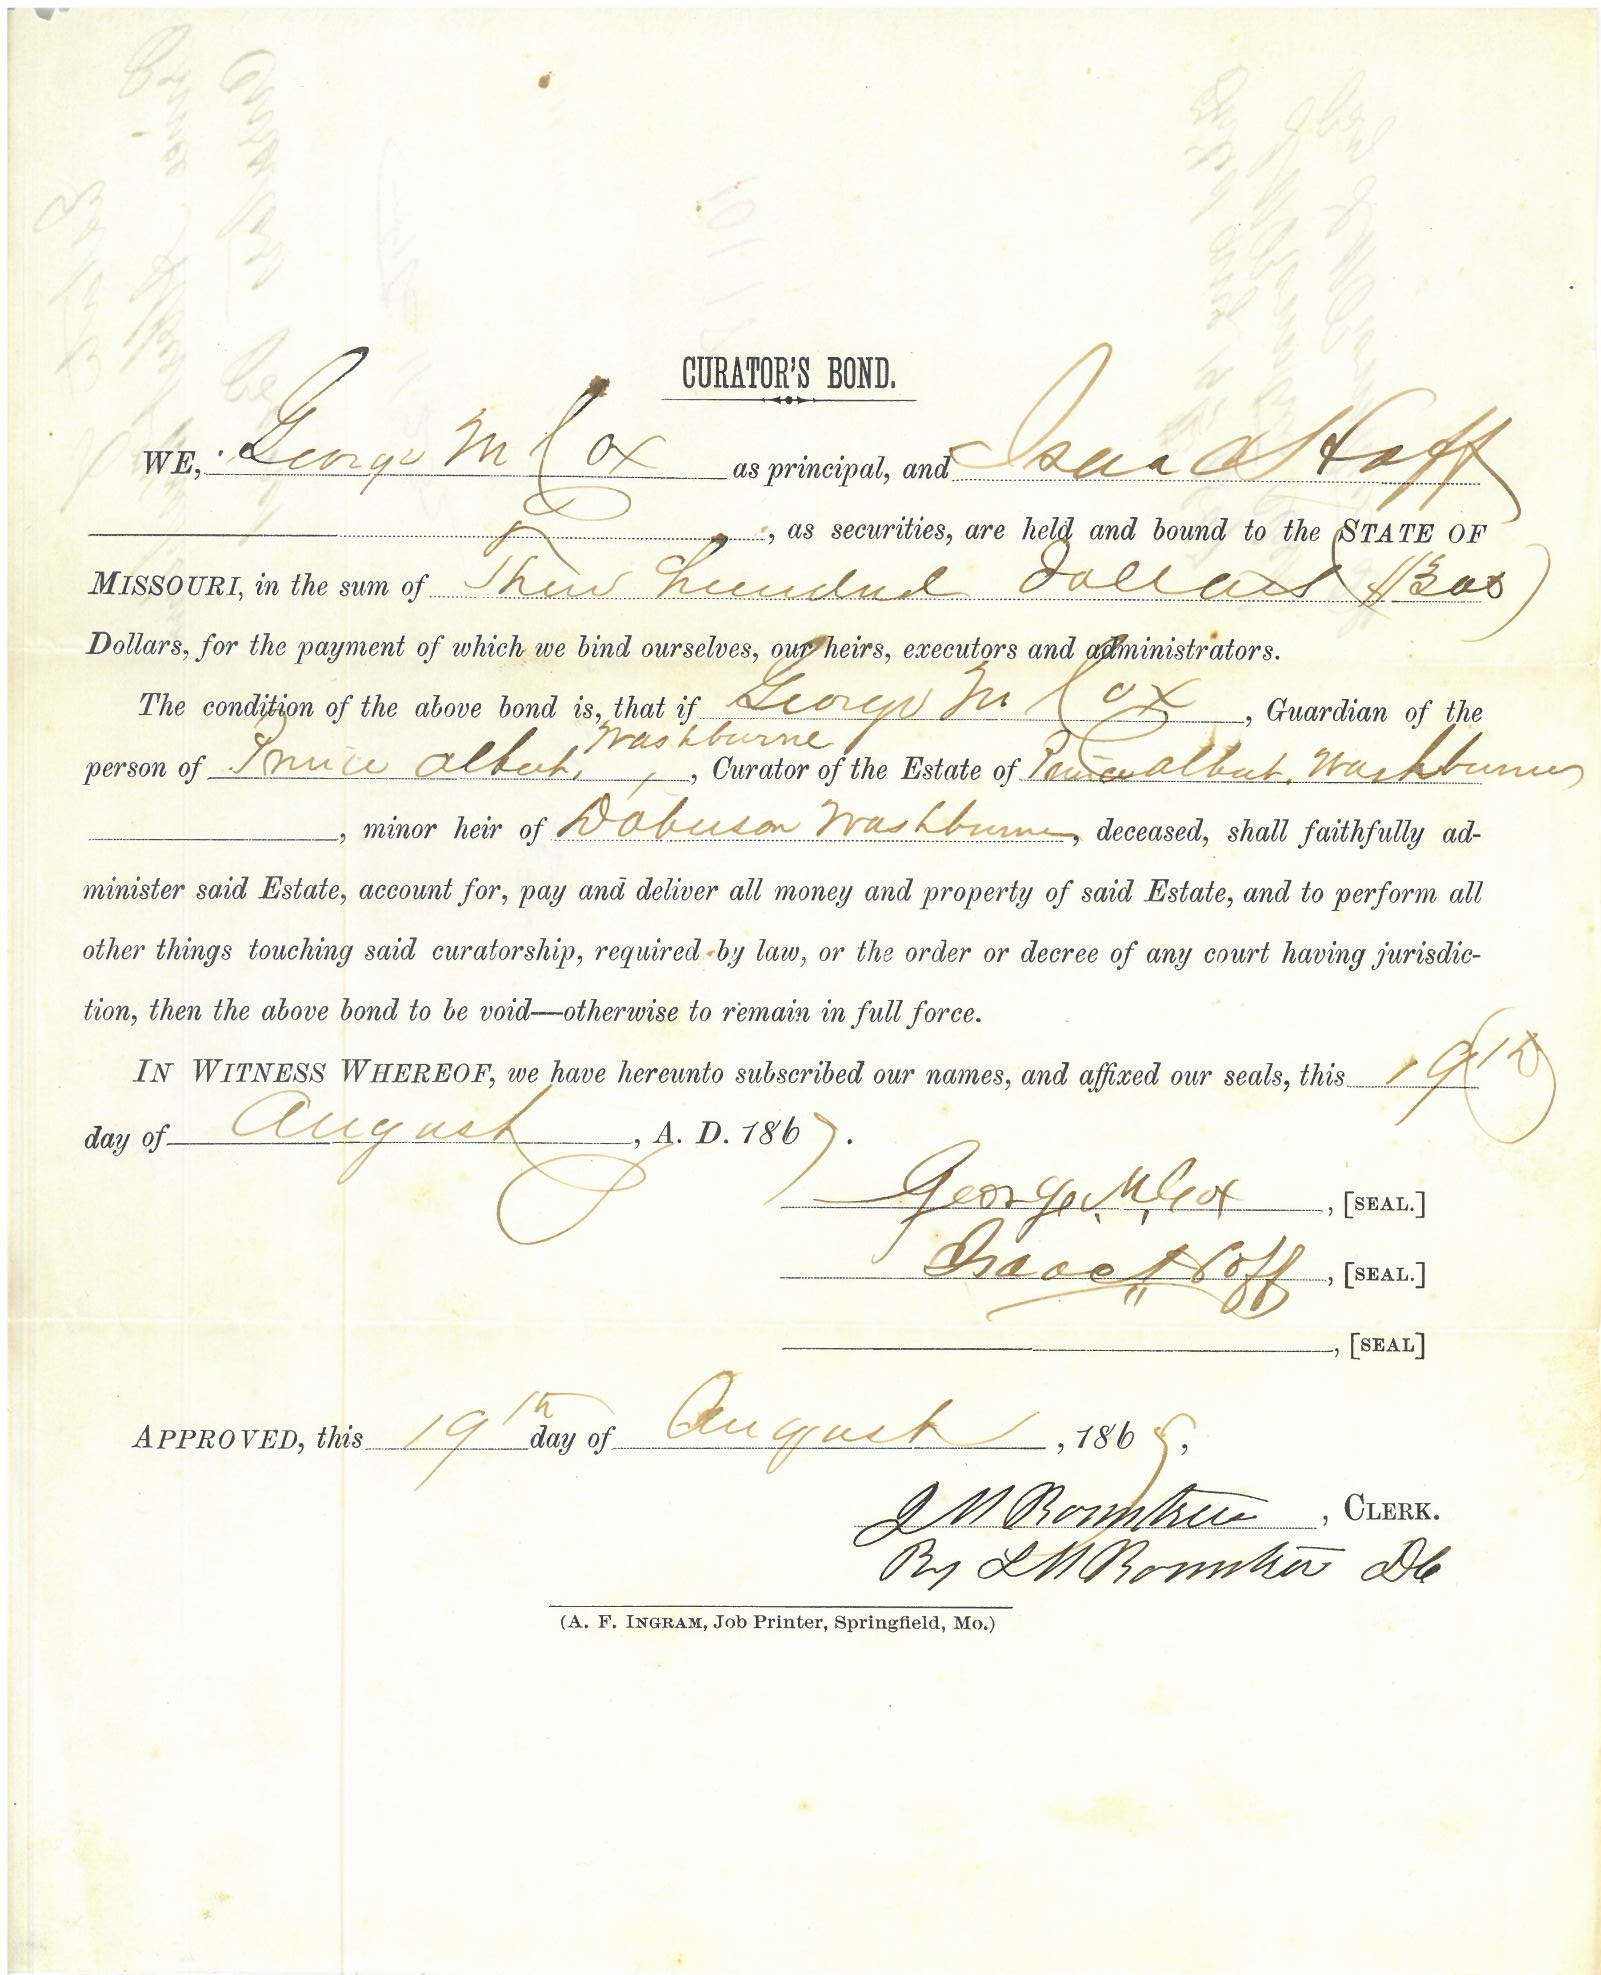 CURATOR'S BOND.
WE, George M Cox as principal, and Isaac Hoff
, as securities, are held and bound to the STATE OF
MISSOURI, in the sum of Three hundred Dollars ($300)
Dollars, for the payment of which we bind ourselves, our heirs, executors and administrators.
The condition of the above bond is, that if George M Cox, Guardian of the
person of Prince Albert, Washburne, Curator of the Estate of Prince Albert, Washburne
, minor heir of Washburne, deceased, shall faithfully ad-
minister said Estate, account for, pay and deliver all money and property of said Estate, and to perform all
other things touching said curatorship, required by law, or the order or decree of any court having jurisdic-
tion, then the above bond to be void—otherwise to remain in full force.
IN WITNESS WHEREOF, we have hereunto subscribed our names, and affixed our seals, this 19th
day of August, A. D. 1867.
George M. Cox, [SEAL.]
Isaac Hoff, [SEAL.]
, [SEAL]
APPROVED, this 19th day of August, 186
J M Rountree, CLERK.
By L M Rountree DC
(A. F. INGRAM, Job Printer, Springfield, Mo.)